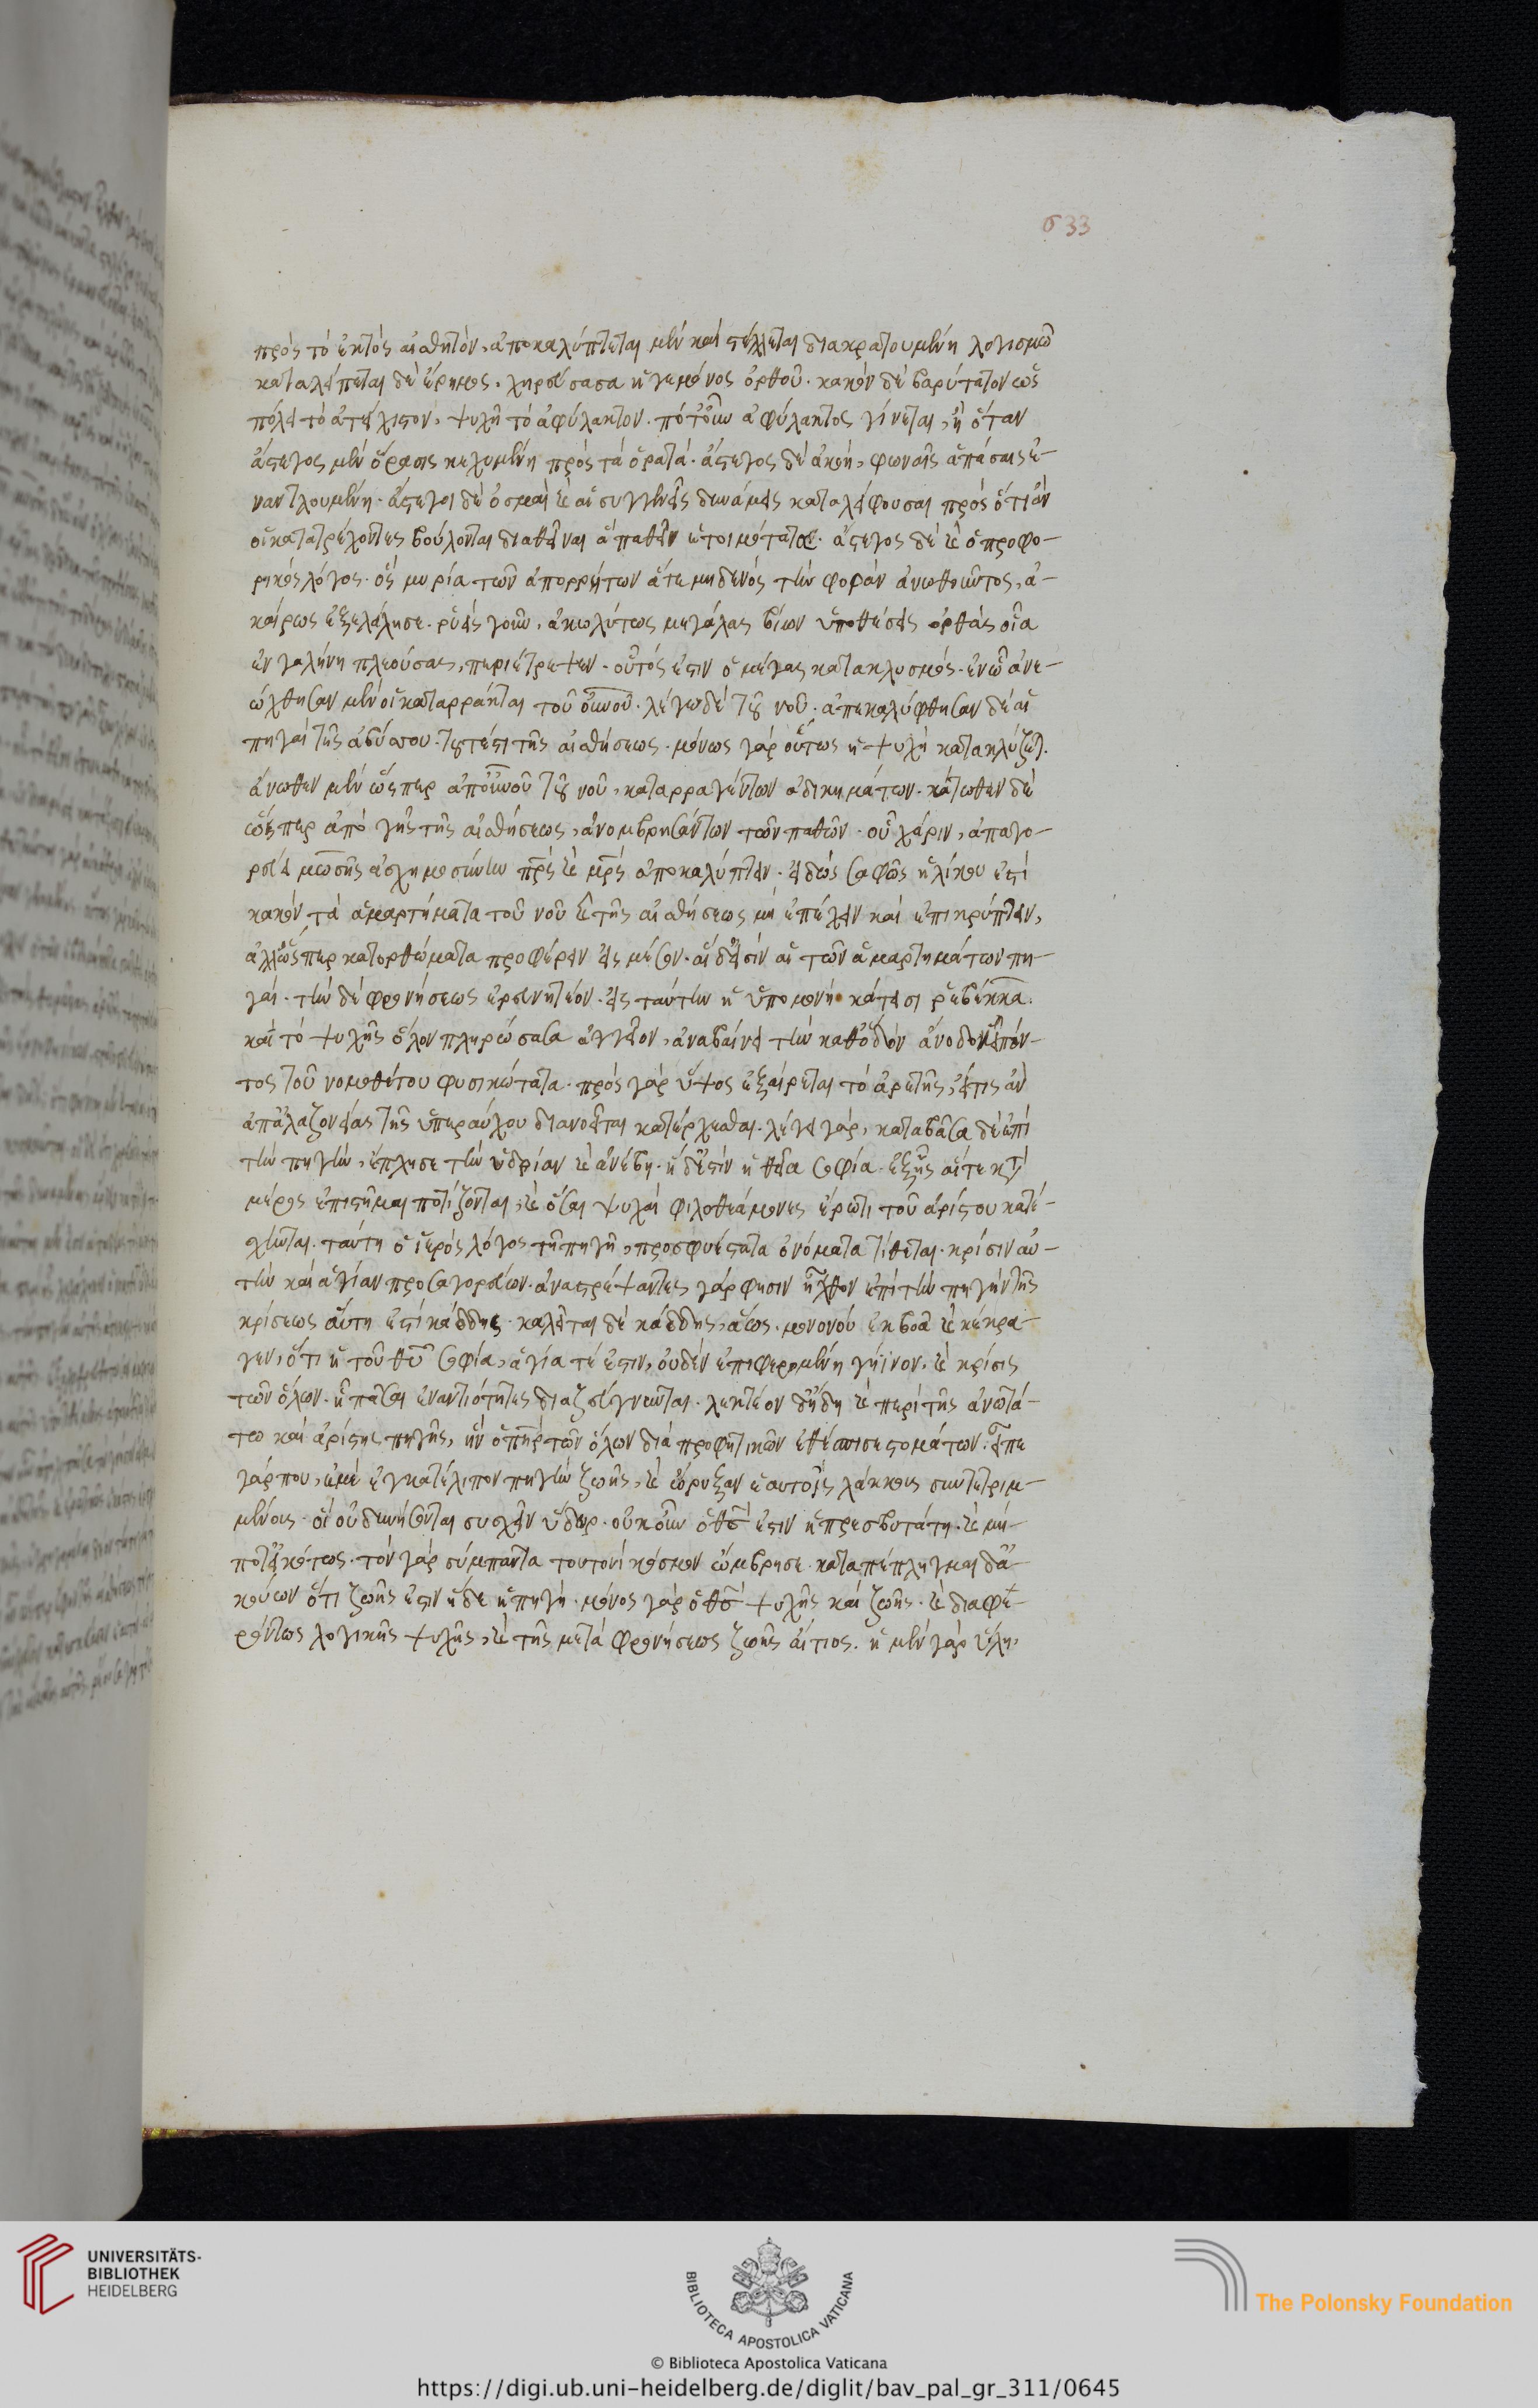 633
πρὸς τὸ ἐκτὸς αἰσθητὸν, ἀποκαλύπτεται μὲν καὶ στέλλεται διακρατουμένη λογισμῶ
καταλείπεται δὲ ἔρημος, χηρεύσασα ἡγεμόνος ὀρθοῦ. κακὸν δὲ βαρύτατον ὡς
πόλει τὸ ἀτείχιστον, ψυχῆ τὸ ἀφύλακτον. πότ' οὖν ἀφύλακτος γίνεται, ἢ ὅταν
ἄστεγος μὲν ὅρασις κεχυμένη πρὸς τὰ ὁρατά. ἄστεγος δὲ ἀκοὴ, φωναῖς ἁπάσαις ἐ-
παντλουμένη. ἄστεγοι δὲ ὀσμαὶ καὶ αἱ συγγενεῖς δυνάμεις καταλειφθοῦσαι πρὸς ὅτι ἂν
οἱ κατατρέχοντες βούλονται διαθεῖναι ἢ παθεῖν ἑτοιμόταται. ἄστεγος δὲ καὶ ὁ προφο-
ρικὸς λόγος. ὃς μυρία τῶν ἀπορρήτων ἅτε μηδενὸς τὴν φορὰν ἀνωθοῦντος, ἀ-
καίρως ἐξελάλησε. ῥυεὶς γοῦν, ἀκωλύτως μεγάλας βίων ὑποθέσεις ὀρθὰς οἷα
ἐν γαλήνη πλεούσας, περιέτρεψεν. οὗτός ἐστιν ὁ μέγας κατακλυσμός. ἐν ὧ ἀνε-
ώχθησαν μὲν οἱ καταρράκται τοῦ οὐνοῦ. λέγω δὲ τοῦ νοῦ. ἀπεκαλύφθησαν δὲ αἱ
πηγαὶ τῆς ἀβύσσου. τουτέστι τῆς αἰσθήσεως. μόνως γὰρ οὕτως ἡ ψυχὴ κατακλύζεται.
ἄνωθεν μὲν ὥσπερ ἀπ' οὐνοῦ τοῦ νοῦ, καταρραγέντων ἀδικημάτων. κάτωθεν δὲ
ὥσπερ ἀπὸ γῆς τῆς αἰσθήσεως, ἀνομβρησάντων τῶν παθῶν. οὗ χάριν, ἀπαγο-
ρεύει μωσῆς ἀσχημοσύνην πρς καὶ μρς ἀποκαλύπτειν. εἰδὼς σαφῶς ἡλίκον ἐστὶ
κακὸν τὰ ἁμαρτήματα τοῦ νοῦ καὶ τῆς αἰσθήσεως μὴ ἐπέχειν καὶ ἐπικρύπτειν,
ἀλλ' ὥσπερ κατορθώματα προφέρειν εἰς μέσον. αἵδ' εἰσὶν αἱ τῶν ἁμαρτημάτων πη-
γαί. τὴν δὲ φρονήσεως ἐρευνητέον. εἰς ταύτην ἡ ὑπομονὴ κάτεισι ῥεβέκκα.
καὶ τὸ ψυχῆς ὅλον πληρώσασα ἀγγεῖον, ἀναβαίνει τὴν κάθοδον ἄνοδον εἰπόν-
τος τοῦ νομοθέτου φυσικώτατα. πρὸς γὰρ ὕψος ἐξαίρεται τὸ ἀρετῆς, ἥτις ἂν
ἀπ' ἀλαζονείας τῆς ὑπεραύχου διανοεῖται κατέρχεσθαι. λέγει γὰρ, καταβᾶσα δὲ ἐπὶ
τὴν πηγὴν, ἔπλησε τὴν ὑδρίαν καὶ ἀνέβη. ἥδ' ἐστὶν ἡ θεία σοφία. ἐξ ἧς αἵτε κατὰ
μέρος ἐπιστῆμαι ποτίζονται, καὶ ὅσαι ψυχαὶ φιλοθεάμονες ἔρωτι τοῦ ἀρίστου κατέ-
σχηνται. ταύτη ὁ ἱερὸς λόγος τῆ πηγῆ, προσφυέστατα ὀνόματα τίθεται. κρίσιν αὐ-
τὴν καὶ ἁγίαν προσαγορεύων. ἀναστρέψαντες γάρ φησιν ἦλθον ἐπὶ τὴν πηγὴν τῆς
κρίσεως αὕτη ἐστὶ κάδδης. καλεῖται δὲ κάδδης, ἅγιος. μονονοὺ ἐκβοᾶ καὶ κέκρα-
γεν, ὅτι ἡ τοῦ θῦ σοφία, ἁγία τέ ἐστιν, οὐδὲν ἐπιφερομένη γήϊνον, καὶ κρίσις
τῶν ὅλων. ἧ πᾶσαι ἐναντιότητες διαζεύγνυνται. λεκτέον δ' ἤδη καὶ περὶ τῆς ἀνωτά-
τω καὶ ἀρίστης πηγῆς, ἣν ὁ πηρ τῶν ὅλων διὰ προφητικῶν ἐθέσπισε στομάτων. εἶπε
γάρ που, ἐμὲ ἐγκατέλιπον πηγὴν ζωῆς, καὶ ὤρυξαν ἑαυτοῖς λάκκους συντετριμ-
μένους. οἳ οὐ δυνήσονται συσχεῖν ὕδωρ. οὐκοῦν ὁ θς ἐστιν ἡ πρεσβυτάτη. καὶ μή-
ποτ' εἰκότως. τὸν γὰρ σύμπαντα τουτονὶ κόσμον ὤμβρησε. καταπέπληγμαι δ' ἀ-
κούων ὅτι ζωῆς ἐστιν ἥδε ἡ πηγή. μόνος γὰρ ὁ θς ψυχῆς καὶ ζωῆς. καὶ διαφε-
ρόντως λογικῆς ψυχῆς, καὶ τῆς μετὰ φρονήσεως ζωῆς αἴτιος. ἡ μὲν γὰρ ὕλη,
UNIVERSITÄTS-
BIBLIOTHEK
HEIDELBERG
BIBLIOTECA APOSTOLICA VATICANA
The Polonsky Foundation
© Biblioteca Apostolica Vaticana
https://digi.ub.uni-heidelberg.de/diglit/bav_pal_gr_311/0645